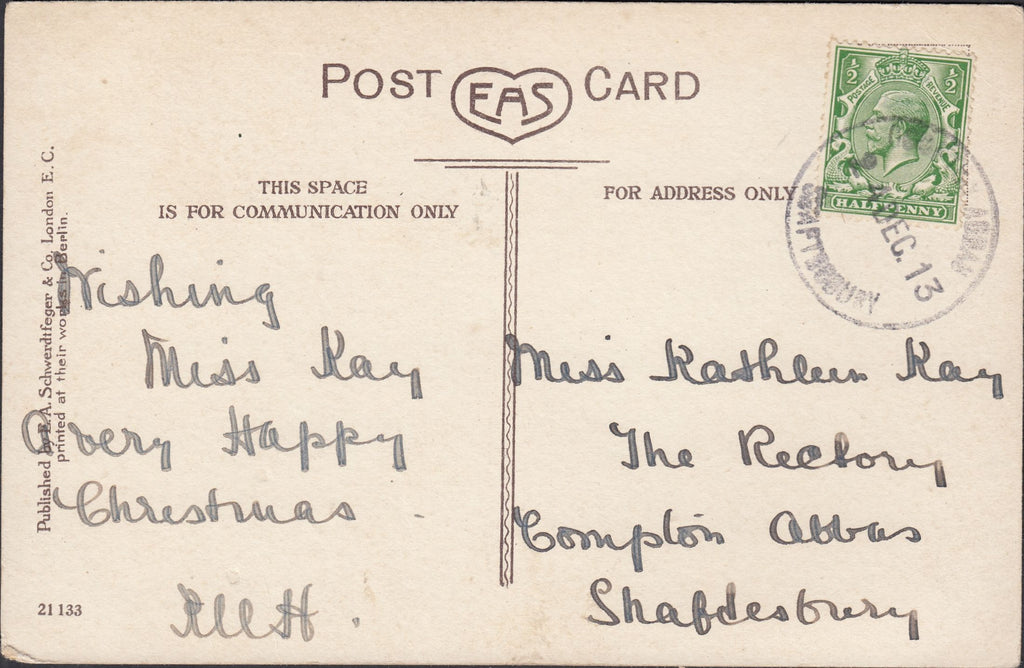 POST EAS CARD
THIS SPACE
IS FOR COMMUNICATION ONLY
FOR ADDRESS ONLY
½ ½
POSTAGE REVENUE
HALFPENNY
ABBAS
DEC. 13
SHAFTESBURY
Published by E. A. Schwerdtfeger & Co., London E. C.
printed at their works in Berlin.
Wishing
Miss Kay
A very Happy
Christmas
Miss Kathleen Kay
The Rectory
Compton Abbas
Shaftesbury
21133